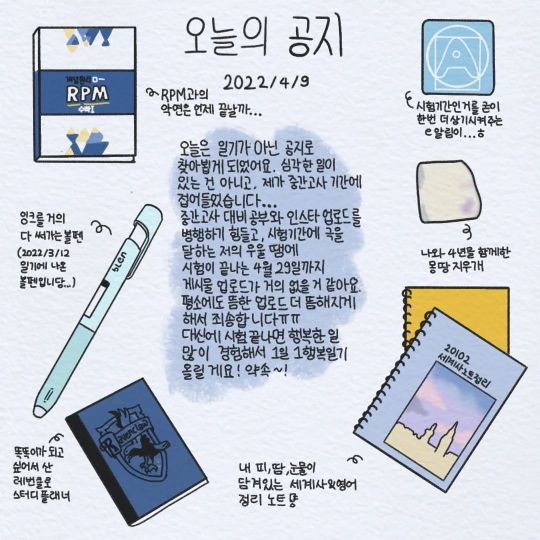 오늘의 공지
2022/4/9
개념원리
RPM
수학I
RPM과의
악연은 언제 끝날까...
시험기간인거를 굳이
한번 더 상기시켜주는
e알림이...ㅎ
오늘은 일기가 아닌 공지로
찾아뵙게 되었어요. 심각한 일이
있는 건 아니고, 제가 중간고사 기간에
접어들었습니다...
중간고사 대비 공부와 인스타 업로드를
병행하기 힘들고, 시험기간에 극을
달하는 저의 우울 땜에
시험이 끝나는 4월 29일까지
게시물 업로드가 거의 없을 거 같아요.
평소에도 뜸한 업로드 더 뜸해지게
해서 죄송합니다ㅠㅠ
대신에 시험 끝나면 행복한 일
많이 경험해서 1일 1행복일기
올릴게요! 약속~!
잉크를 거의
다 써가는 볼펜
(2022/3/12
일기에 나온
볼펜입니당...)
blen
나와 4년을 함께한
몽땅 지우개
20102
세계사노트정리
Ravenclaw
똑똑이가 되고
싶어서 산
레번클로
스터디 플래너
내 피,땀,눈물이
담겨있는 세계사&영어
정리 노트